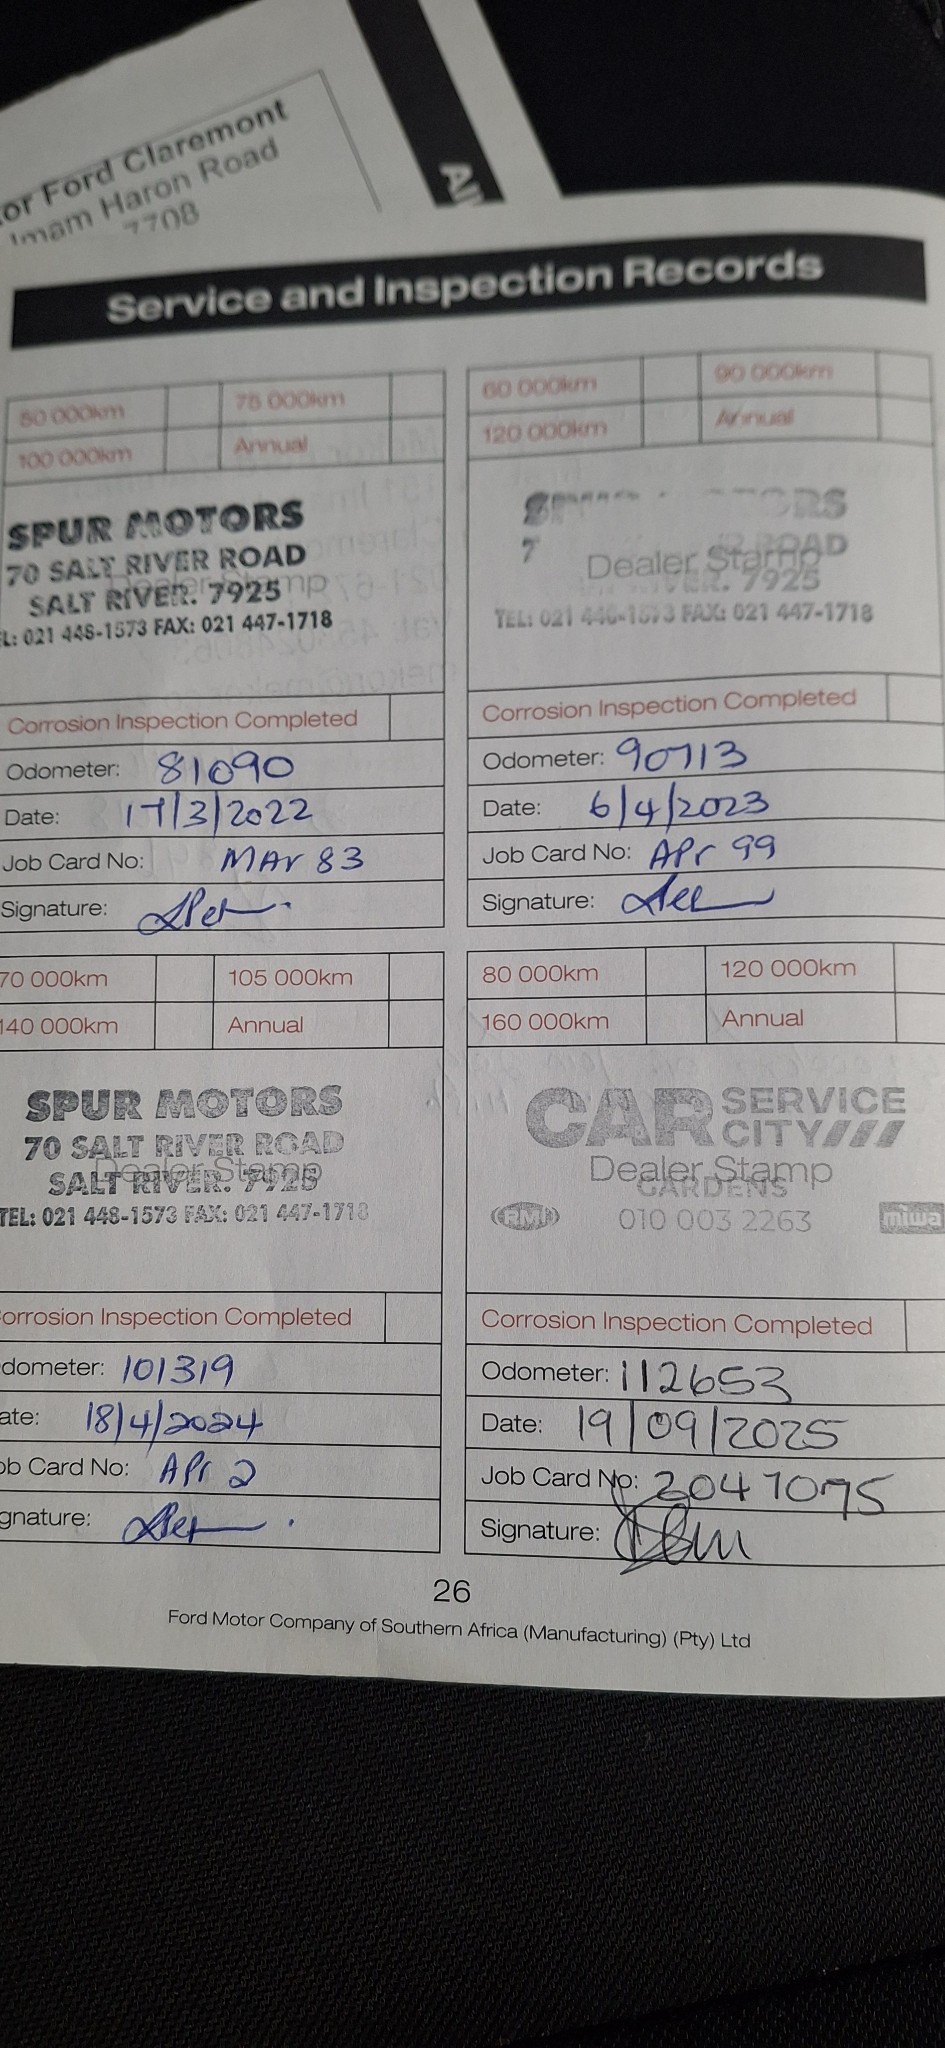 or Ford Claremont
Imam Haron Road
7708
Service and Inspection Records
50 000km 75 000km
100 000km Annual
SPUR MOTORS
70 SALT RIVER ROAD
Dealer Stamp
SALT RIVER. 7925
L: 021 448-1573 FAX: 021 447-1718
Corrosion Inspection Completed
Odometer: 81090
Date: 17/3/2022
Job Card No: MAr 83
Signature:
60 000km 90 000km
120 000km Annual
ROAD
Dealer Stamp
7925
TEL: 021 FAX: 021 447-1718
Corrosion Inspection Completed
Odometer: 90713
Date: 6/4/2023
Job Card No: APr 99
Signature:
70 000km 105 000km
140 000km Annual
SPUR MOTORS
70 SALT RIVER ROAD
Dealer Stamp
SALT RIVER. 7925
TEL: 021 448-1573 FAX: 021 447-1718
orrosion Inspection Completed
dometer: 101319
ate: 18/4/2024
ob Card No: APr 2
gnature:
80 000km 120 000km
160 000km Annual
CAR SERVICE CITY
Dealer Stamp
GARDENS
RMI 010 003 2263 miwa
Corrosion Inspection Completed
Odometer: 112653
Date: 19/09/2025
Job Card No: 2047075
Signature:
26
Ford Motor Company of Southern Africa (Manufacturing) (Pty) Ltd